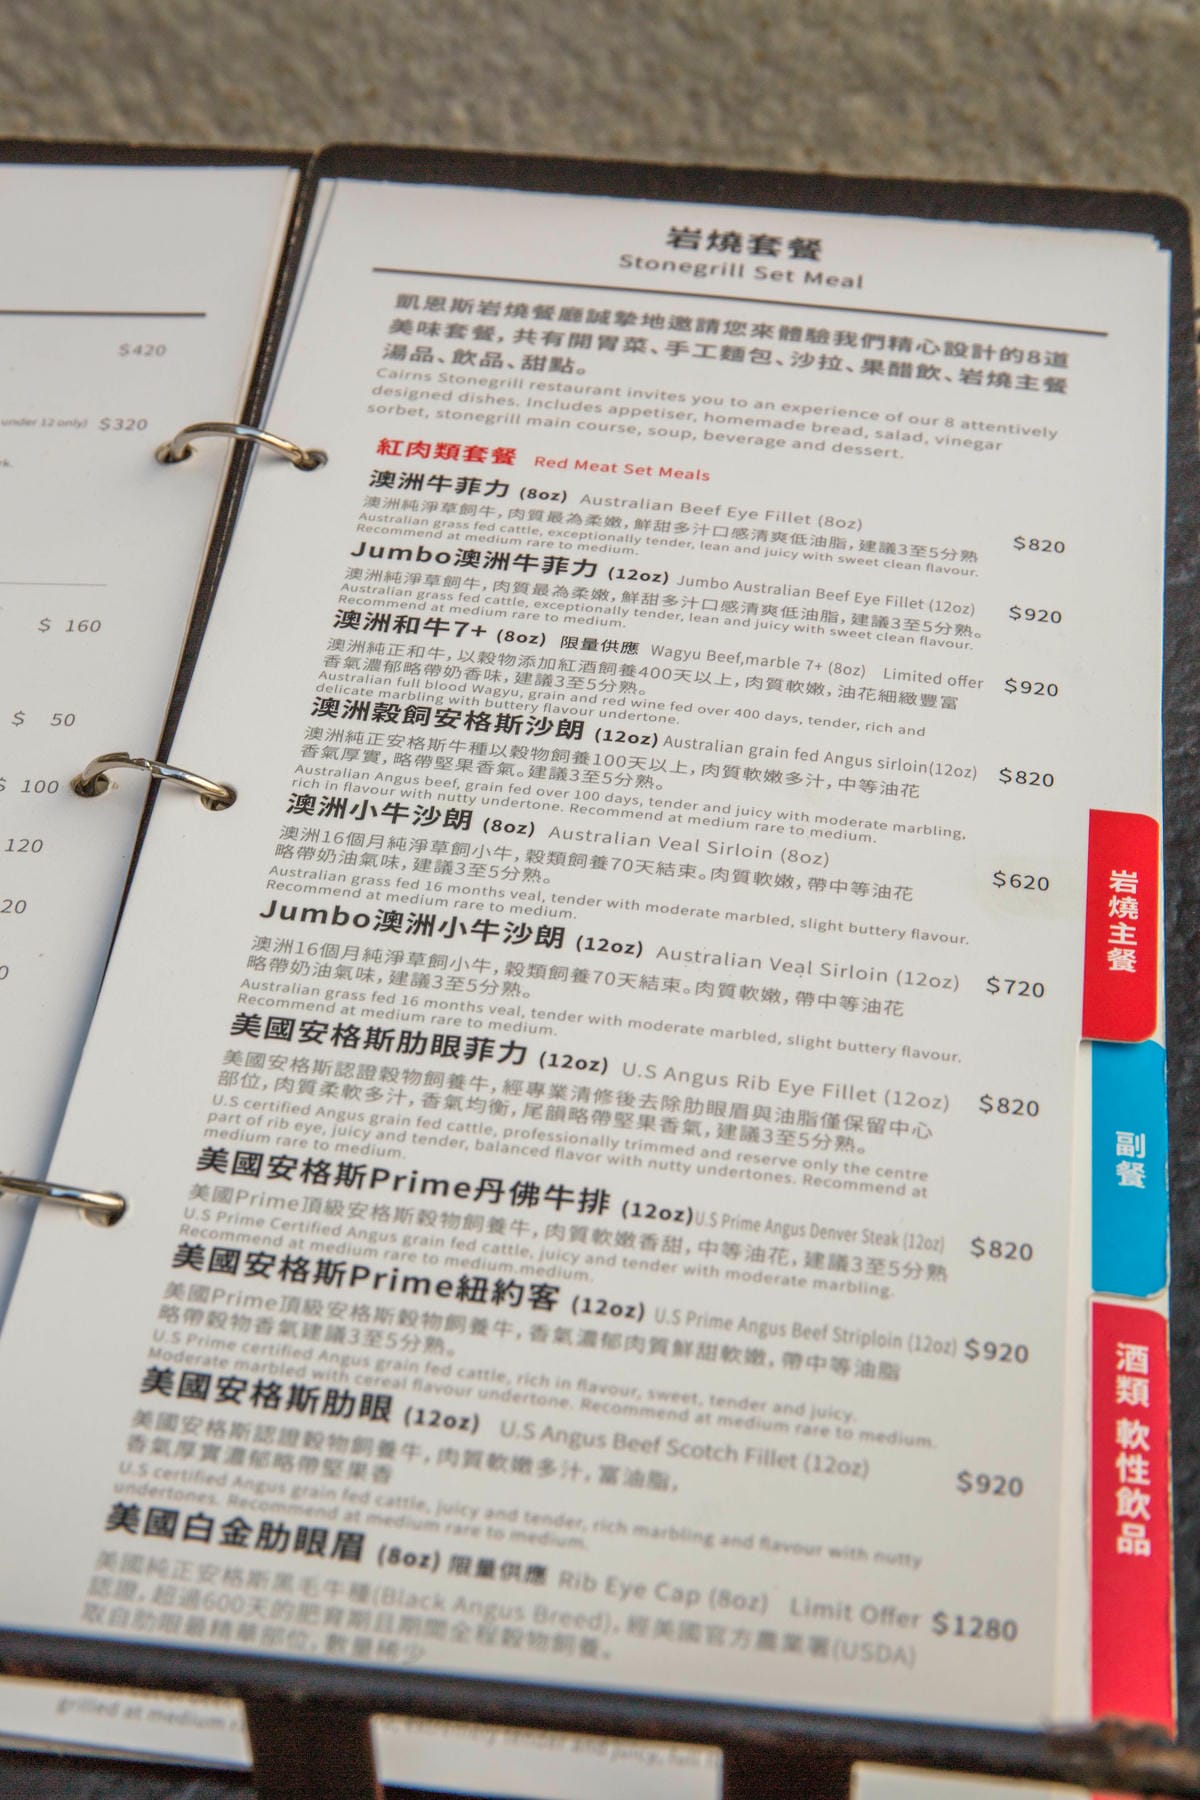 $420
under 12 only) $320
rk.
$ 160
$ 50
$ 100
120
20
0
岩燒套餐
Stonegrill Set Meal
凱恩斯岩燒餐廳誠摯地邀請您來體驗我們精心設計的8道
美味套餐，共有開胃菜、手工麵包、沙拉、果醋飲、岩燒主餐
湯品、飲品、甜點。
Cairns Stonegrill restaurant invites you to an experience of our 8 attentively
designed dishes. Includes appetiser, homemade bread, salad, vinegar
sorbet, stonegrill main course, soup, beverage and dessert.
紅肉類套餐 Red Meat Set Meals
澳洲牛菲力 (8oz) Australian Beef Eye Fillet (8oz)
澳洲純淨草飼牛，肉質最為柔嫩，鮮甜多汁口感清爽低油脂，建議3至5分熟 $820
Australian grass fed cattle, exceptionally tender, lean and juicy with sweet clean flavour.
Recommend at medium rare to medium.
Jumbo澳洲牛菲力 (12oz) Jumbo Australian Beef Eye Fillet (12oz)
澳洲純淨草飼牛，肉質最為柔嫩，鮮甜多汁口感清爽低油脂，建議3至5分熟。 $920
Australian grass fed cattle, exceptionally tender, lean and juicy with sweet clean flavour.
Recommend at medium rare to medium.
澳洲和牛7+ (8oz) 限量供應 Wagyu Beef,marble 7+ (8oz) Limited offer $920
澳洲純正和牛，以穀物添加紅酒飼養400天以上，肉質軟嫩，油花細緻豐富
香氣濃郁略帶奶香味，建議3至5分熟。
Australian full blood Wagyu, grain and red wine fed over 400 days, tender, rich and
delicate marbling with buttery flavour undertone.
澳洲穀飼安格斯沙朗 (12oz) Australian grain fed Angus sirloin(12oz) $820
澳洲純正安格斯牛種以穀物飼養100天以上，肉質軟嫩多汁，中等油花
香氣厚實，略帶堅果香氣。建議3至5分熟。
Australian Angus beef, grain fed over 100 days, tender and juicy with moderate marbling,
rich in flavour with nutty undertone. Recommend at medium rare to medium.
澳洲小牛沙朗 (8oz) Australian Veal Sirloin (8oz)
澳洲16個月純淨草飼小牛，穀類飼養70天結束。肉質軟嫩，帶中等油花 $620
略帶奶油氣味，建議3至5分熟。
Australian grass fed 16 months veal, tender with moderate marbled, slight buttery flavour.
Recommend at medium rare to medium.
Jumbo澳洲小牛沙朗 (12oz) Australian Veal Sirloin (12oz) $720
澳洲16個月純淨草飼小牛，穀類飼養70天結束。肉質軟嫩，帶中等油花
略帶奶油氣味，建議3至5分熟。
Australian grass fed 16 months veal, tender with moderate marbled, slight buttery flavour.
Recommend at medium rare to medium.
美國安格斯肋眼菲力 (12oz) U.S Angus Rib Eye Fillet (12oz) $820
美國安格斯認證穀物飼養牛，經專業清修後去除肋眼眉與油脂僅保留中心
部位，肉質柔軟多汁，香氣均衡，尾韻略帶堅果香氣，建議3至5分熟。
U.S certified Angus grain fed cattle, professionally trimmed and reserve only the centre
part of rib eye, juicy and tender, balanced flavor with nutty undertones. Recommend at
medium rare to medium.
美國安格斯Prime丹佛牛排 (12oz)U.S Prime Angus Denver Steak (12oz) $820
美國Prime頂級安格斯穀物飼養牛，肉質軟嫩香甜，中等油花，建議3至5分熟
U.S Prime Certified Angus grain fed cattle, juicy and tender with moderate marbling.
Recommend at medium rare to medium.medium.
美國安格斯Prime紐約客 (12oz) U.S Prime Angus Beef Striploin (12oz) $920
美國Prime頂級安格斯穀物飼養牛，香氣濃郁肉質鮮甜軟嫩，帶中等油脂
略帶穀物香氣建議3至5分熟。
U.S Prime certified Angus grain fed cattle, rich in flavour, sweet, tender and juicy.
Moderate marbled with cereal flavour undertone. Recommend at medium rare to medium.
美國安格斯肋眼 (12oz) U.S Angus Beef Scotch Fillet (12oz)
美國安格斯認證穀物飼養牛，肉質軟嫩多汁，富油脂， $920
香氣厚實濃郁略帶堅果香
U.S certified Angus grain fed cattle, juicy and tender, rich marbling and flavour with nutty
undertones. Recommend at medium rare to medium.
美國白金肋眼眉 (8oz) 限量供應 Rib Eye Cap (8oz) Limit Offer $1280
美國純正安格斯黑毛牛種(Black Angus Breed)，經美國官方農業署(USDA)
認證，超過600天的肥育期且期間全程穀物飼養。
取自肋眼最精華部位，數量稀少
岩燒主餐
副餐
酒類 軟性飲品
grilled at medium ra
extremely tender and juicy, full